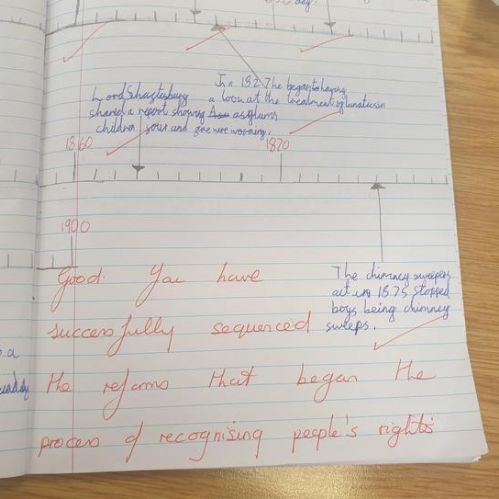 In 1827 he began to having
Lord Shaftesbury a look at the treatment of lunatics in
shared a report showing asylums
children four and five were working.
1860
1870
1900
The chimney sweepers
act in 1875 stopped
boys being chimney
sweeps.
Good. You have
successfully sequenced
the reforms that began the
process of recognising people's rights